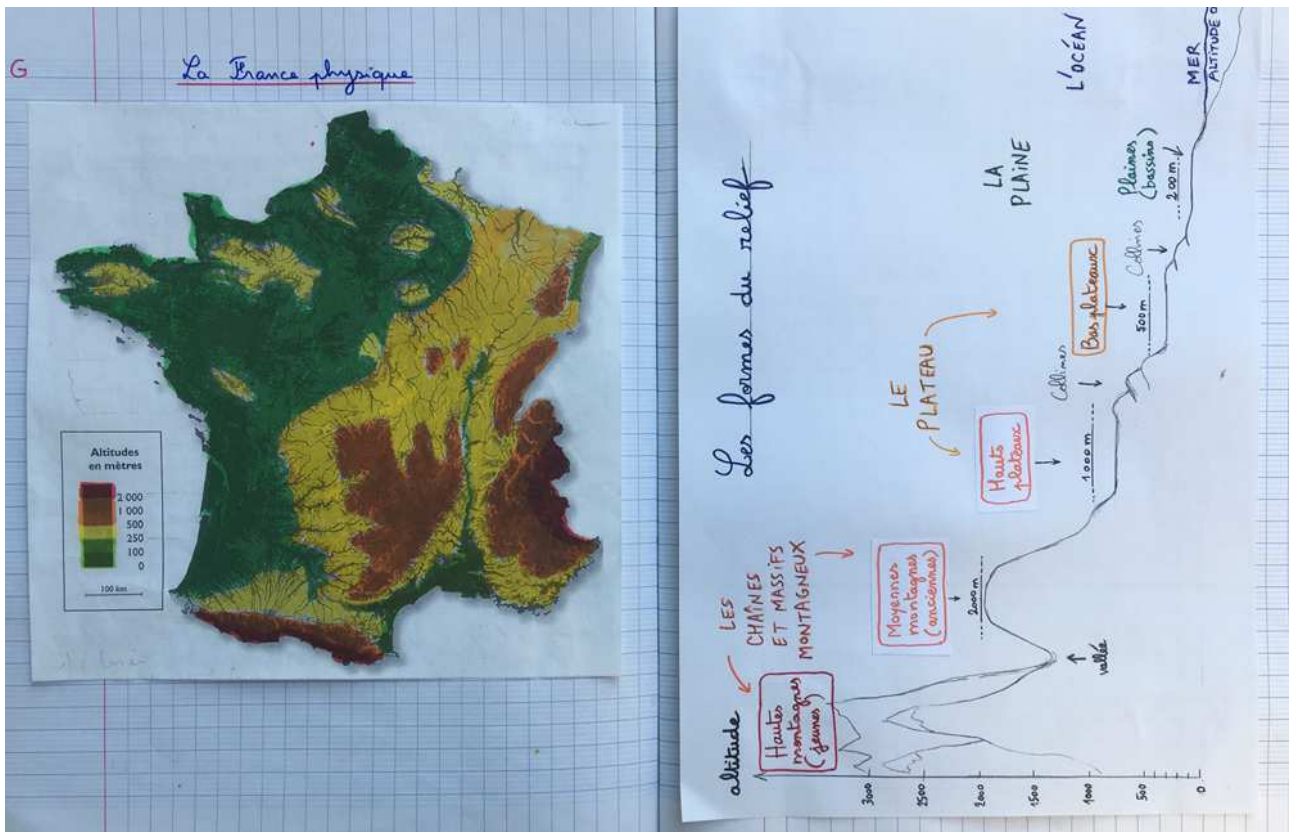 G
La France physique
Altitudes
en mètres
2 000
1 000
500
250
100
0
100 km
Les formes du relief
altitude
3000
2500
2000
1500
1000
500
0
LES
CHAÎNES
ET MASSIFS
MONTAGNEUX
Hautes
montagnes
(jeunes)
Moyennes
montagnes
(anciennes)
2000 m
vallée
LE
PLATEAU
Hauts
plateaux
1000 m
Collines
Bas plateaux
500 m
Collines
LA
PLAINE
Plaines
(bassins)
200 m
L'OCÉAN
MER
ALTITUDE 0